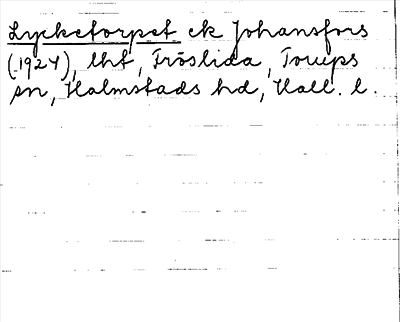 Lycketorpet ck Johansfors
(1924), lht, Fröslida, Torups
sn, Halmstads hd, Hall. l.